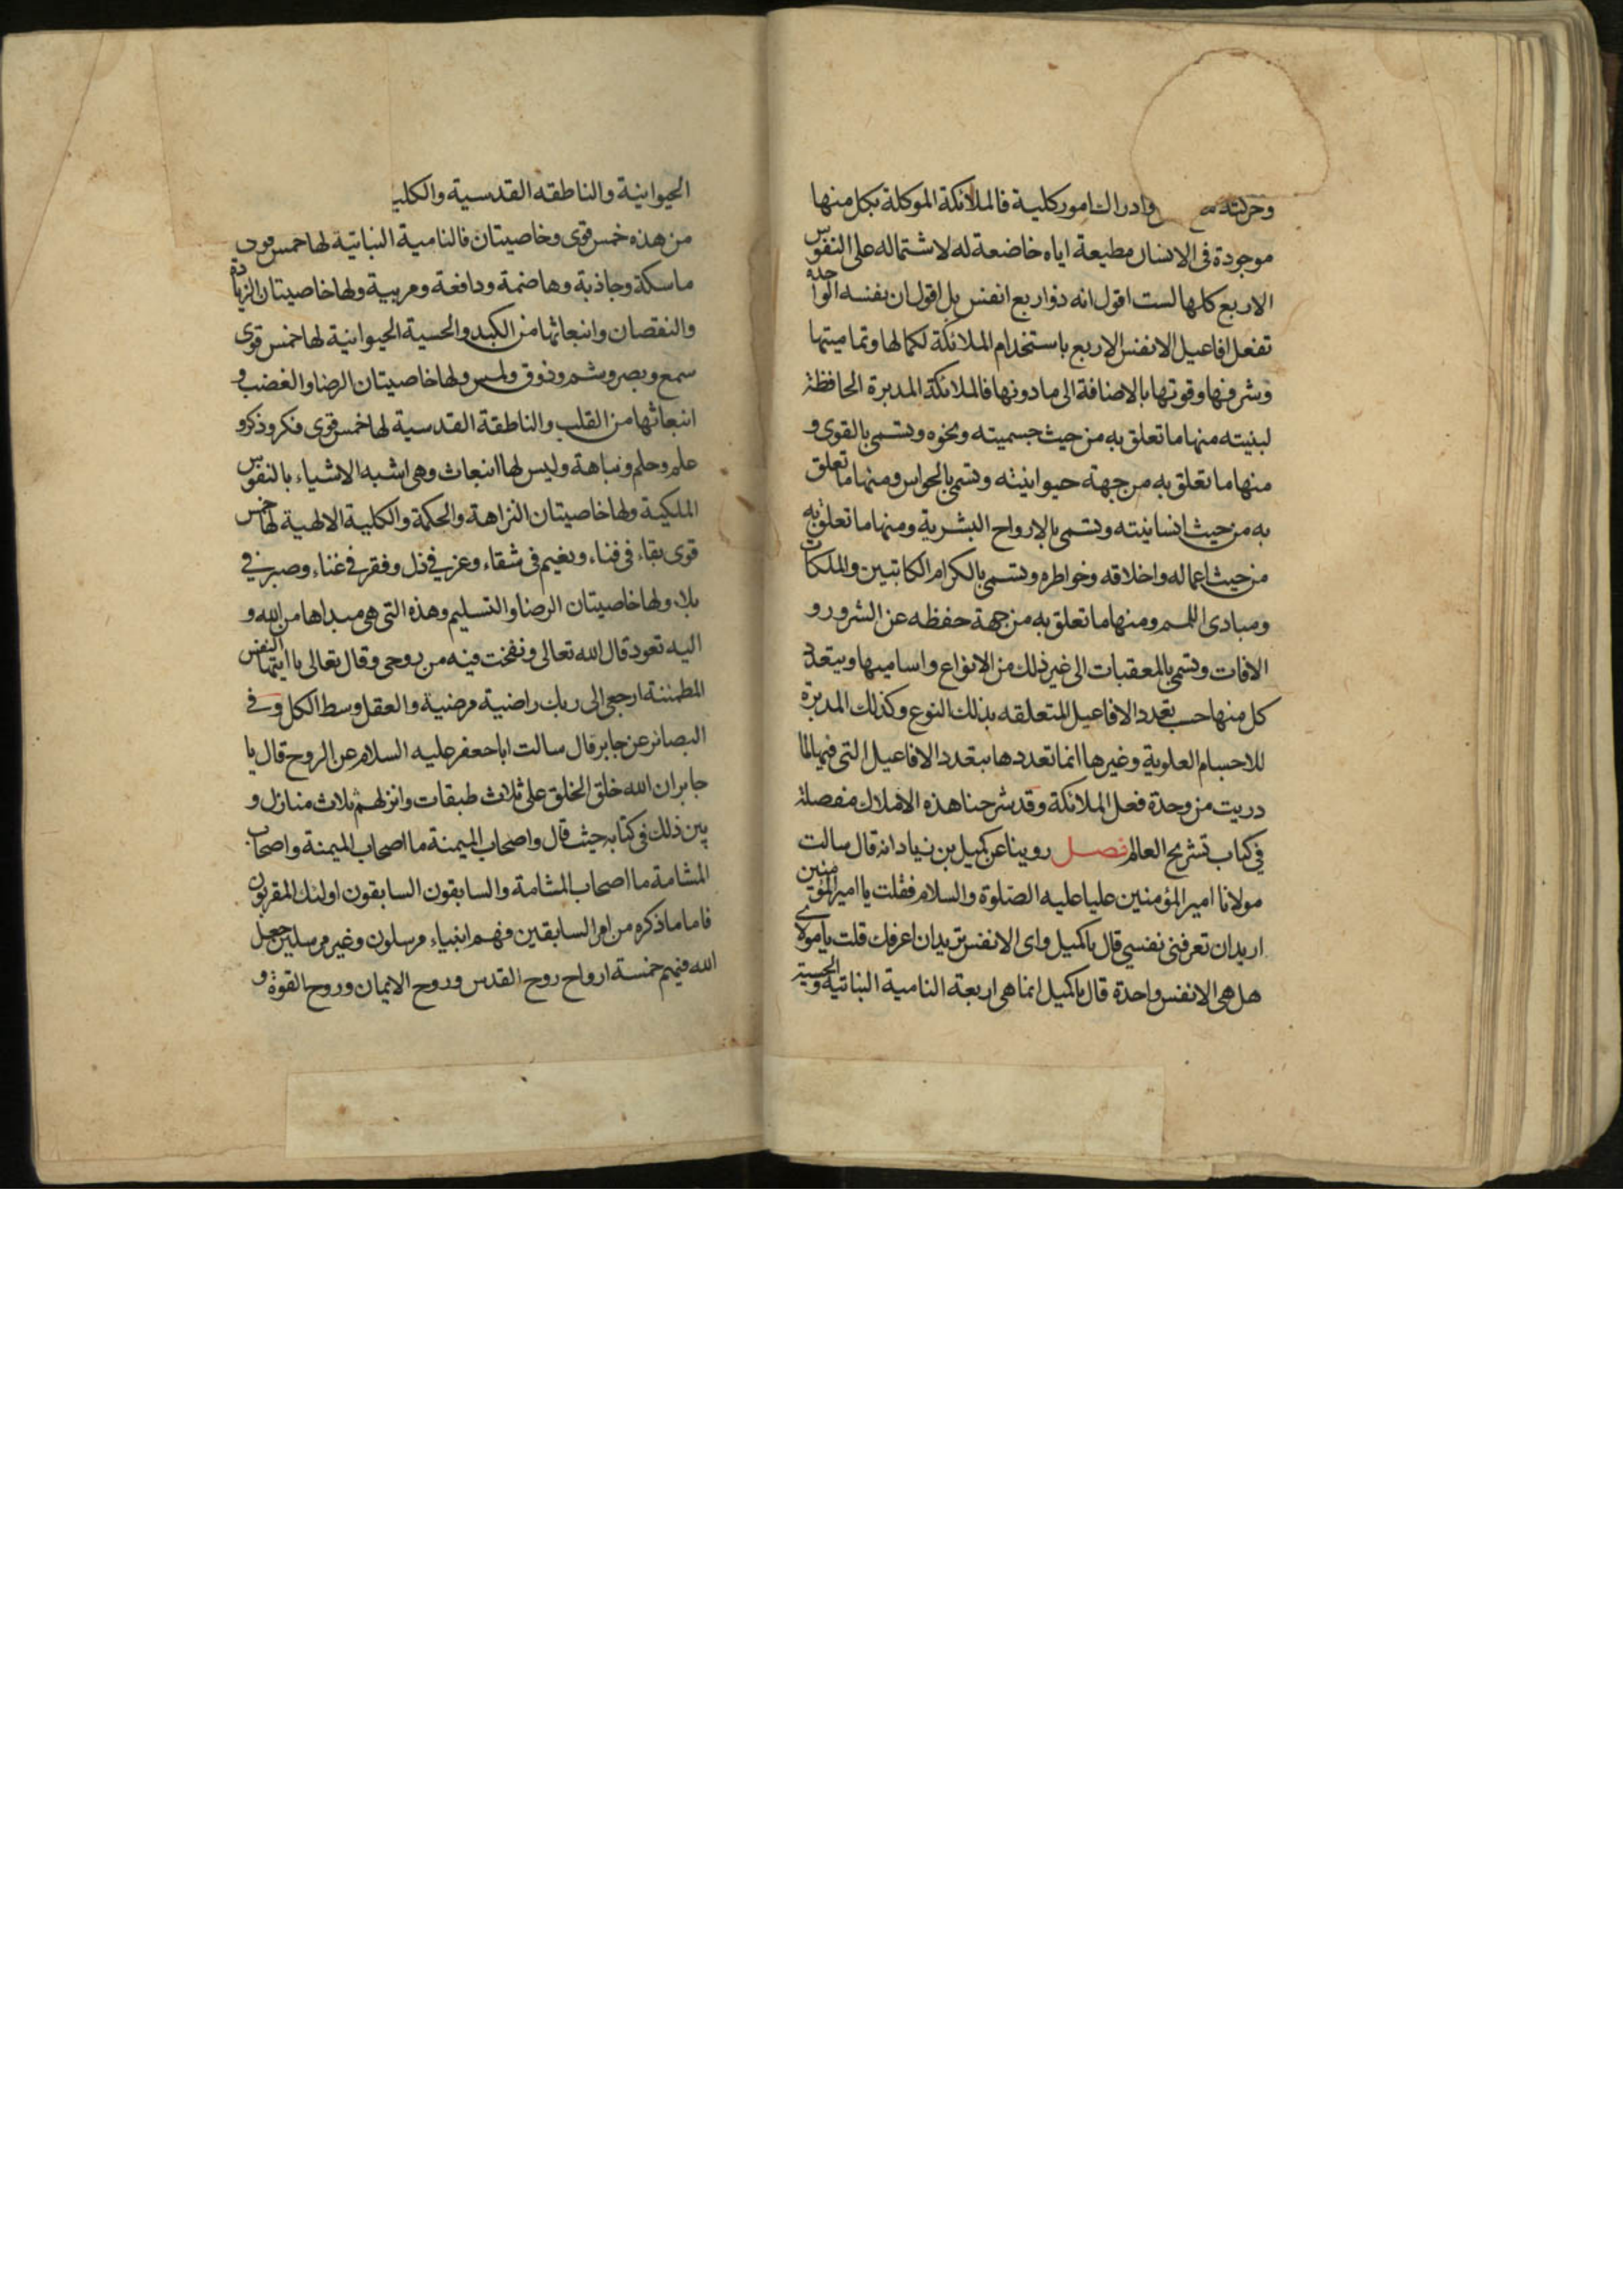 وحركته وادراك امور كلية فالملائكة الموكلة بكل منها
موجودة فى الانسان مطيعة اياه خاضعة له لاشتماله على النفوس
الاربع كلها لست اقول انه ذو اربع انفس بل اقول ان نفسه الواحده
تفعل افاعيل الانفس الاربع باستخدام الملائكة لكمالها وتماميتها
وشرفها وقوتها بالاضافة الى ما دونها فالملائكة المدبرة الحافظة
لبنيته منها ما تعلق به من حيث جسميته ونحوه وتسمى بالقوى و
منها ما تعلق به من جهة حيوانيته وتسمى بالحواس ومنها ما تعلق
به من حيث انسانيته وتسمى بالارواح البشرية ومنها ما تعلق به
من حيث اعماله واخلاقه وخواطره وتسمى بالكرام الكاتبين والملكات
ومبادى اللمم ومنها ما تعلق به من جهة حفظه عن الشرور و
الافات وتسمى بالمعقبات الى غير ذلك من الانواع واساميها ويتعدد
كل منها حسب تعدد الافاعيل المتعلقه بذلك النوع وكذلك المدبرة
للاجسام العلوية وغيرها انما تعددها بتعدد الافاعيل التى فيها لما
دريت من وحدة فعل الملائكة وقد شرحنا هذه الاملاك مفصلة
فى كتاب تشريح العالم فصل روينا عن كميل بن زياد انه قال سالت
مولانا امير المؤمنين عليا عليه الصلوة والسلام فقلت يا امير المؤمنين
اريد ان تعرفنى نفسي قال يا كميل واى الانفس تريد ان اعرفك قلت يا مولاى
هل هى الا نفس واحدة قال يا كميل انما هى اربعة النامية النباتية والحسية
الحيوانية والناطقه القدسية والكلية
من هذه خمس قوى وخاصيتان فالنامية النباتية لها خمس قوى
ماسكة وجاذبة وهاضمة ودافعة ومربية ولها خاصيتان الزيادة
والنقصان وانبعاثها من الكبد والحسية الحيوانية لها خمس قوى
سمع وبصر وشم وذوق ولمس ولها خاصيتان الرضا والغضب و
انبعاثها من القلب والناطقة القدسية لها خمس قوى فكر وذكر و
علم وحلم ونباهة وليس لها انبعاث وهى اشبه الاشياء بالنفوس
الملكية ولها خاصيتان النزاهة والحكمة والكلية الالهية لها خمس
قوى بقاء فى فناء ونعيم فى شقاء وعز في ذل وفقر في غناء وصبر في
بلاء ولها خاصيتان الرضا والتسليم وهذه التى هى مبداها من الله و
اليه تعود قال الله تعالى ونفخت فيه من روحى وقال تعالى يا ايتها النفس
المطمئنة ارجعى الى ربك راضية مرضية والعقل وسط الكل وفى
البصائر عن جابر قال سالت ابا جعفر عليه السلام عن الروح قال يا
جابر ان الله خلق الخلق على ثلاث طبقات وانزلهم ثلاث منازل و
بين ذلك فى كتابه حيث قال واصحاب الميمنة ما اصحاب الميمنة واصحاب
المشامة ما اصحاب المشامة والسابقون السابقون اولئك المقربون
فاما ما ذكره من امر السابقين فهم انبياء مرسلون وغير مرسلين جعل
الله فيهم خمسة ارواح روح القدس وروح الايمان وروح القوة و